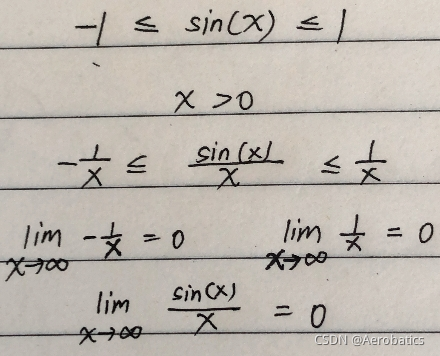 -1 ≤ sin(x) ≤ 1
x > 0
-1/x ≤ sin(x)/x ≤ 1/x
lim x→∞ -1/x = 0 lim x→∞ 1/x = 0
lim x→∞ sin(x)/x = 0
CSDN @Aerobatics